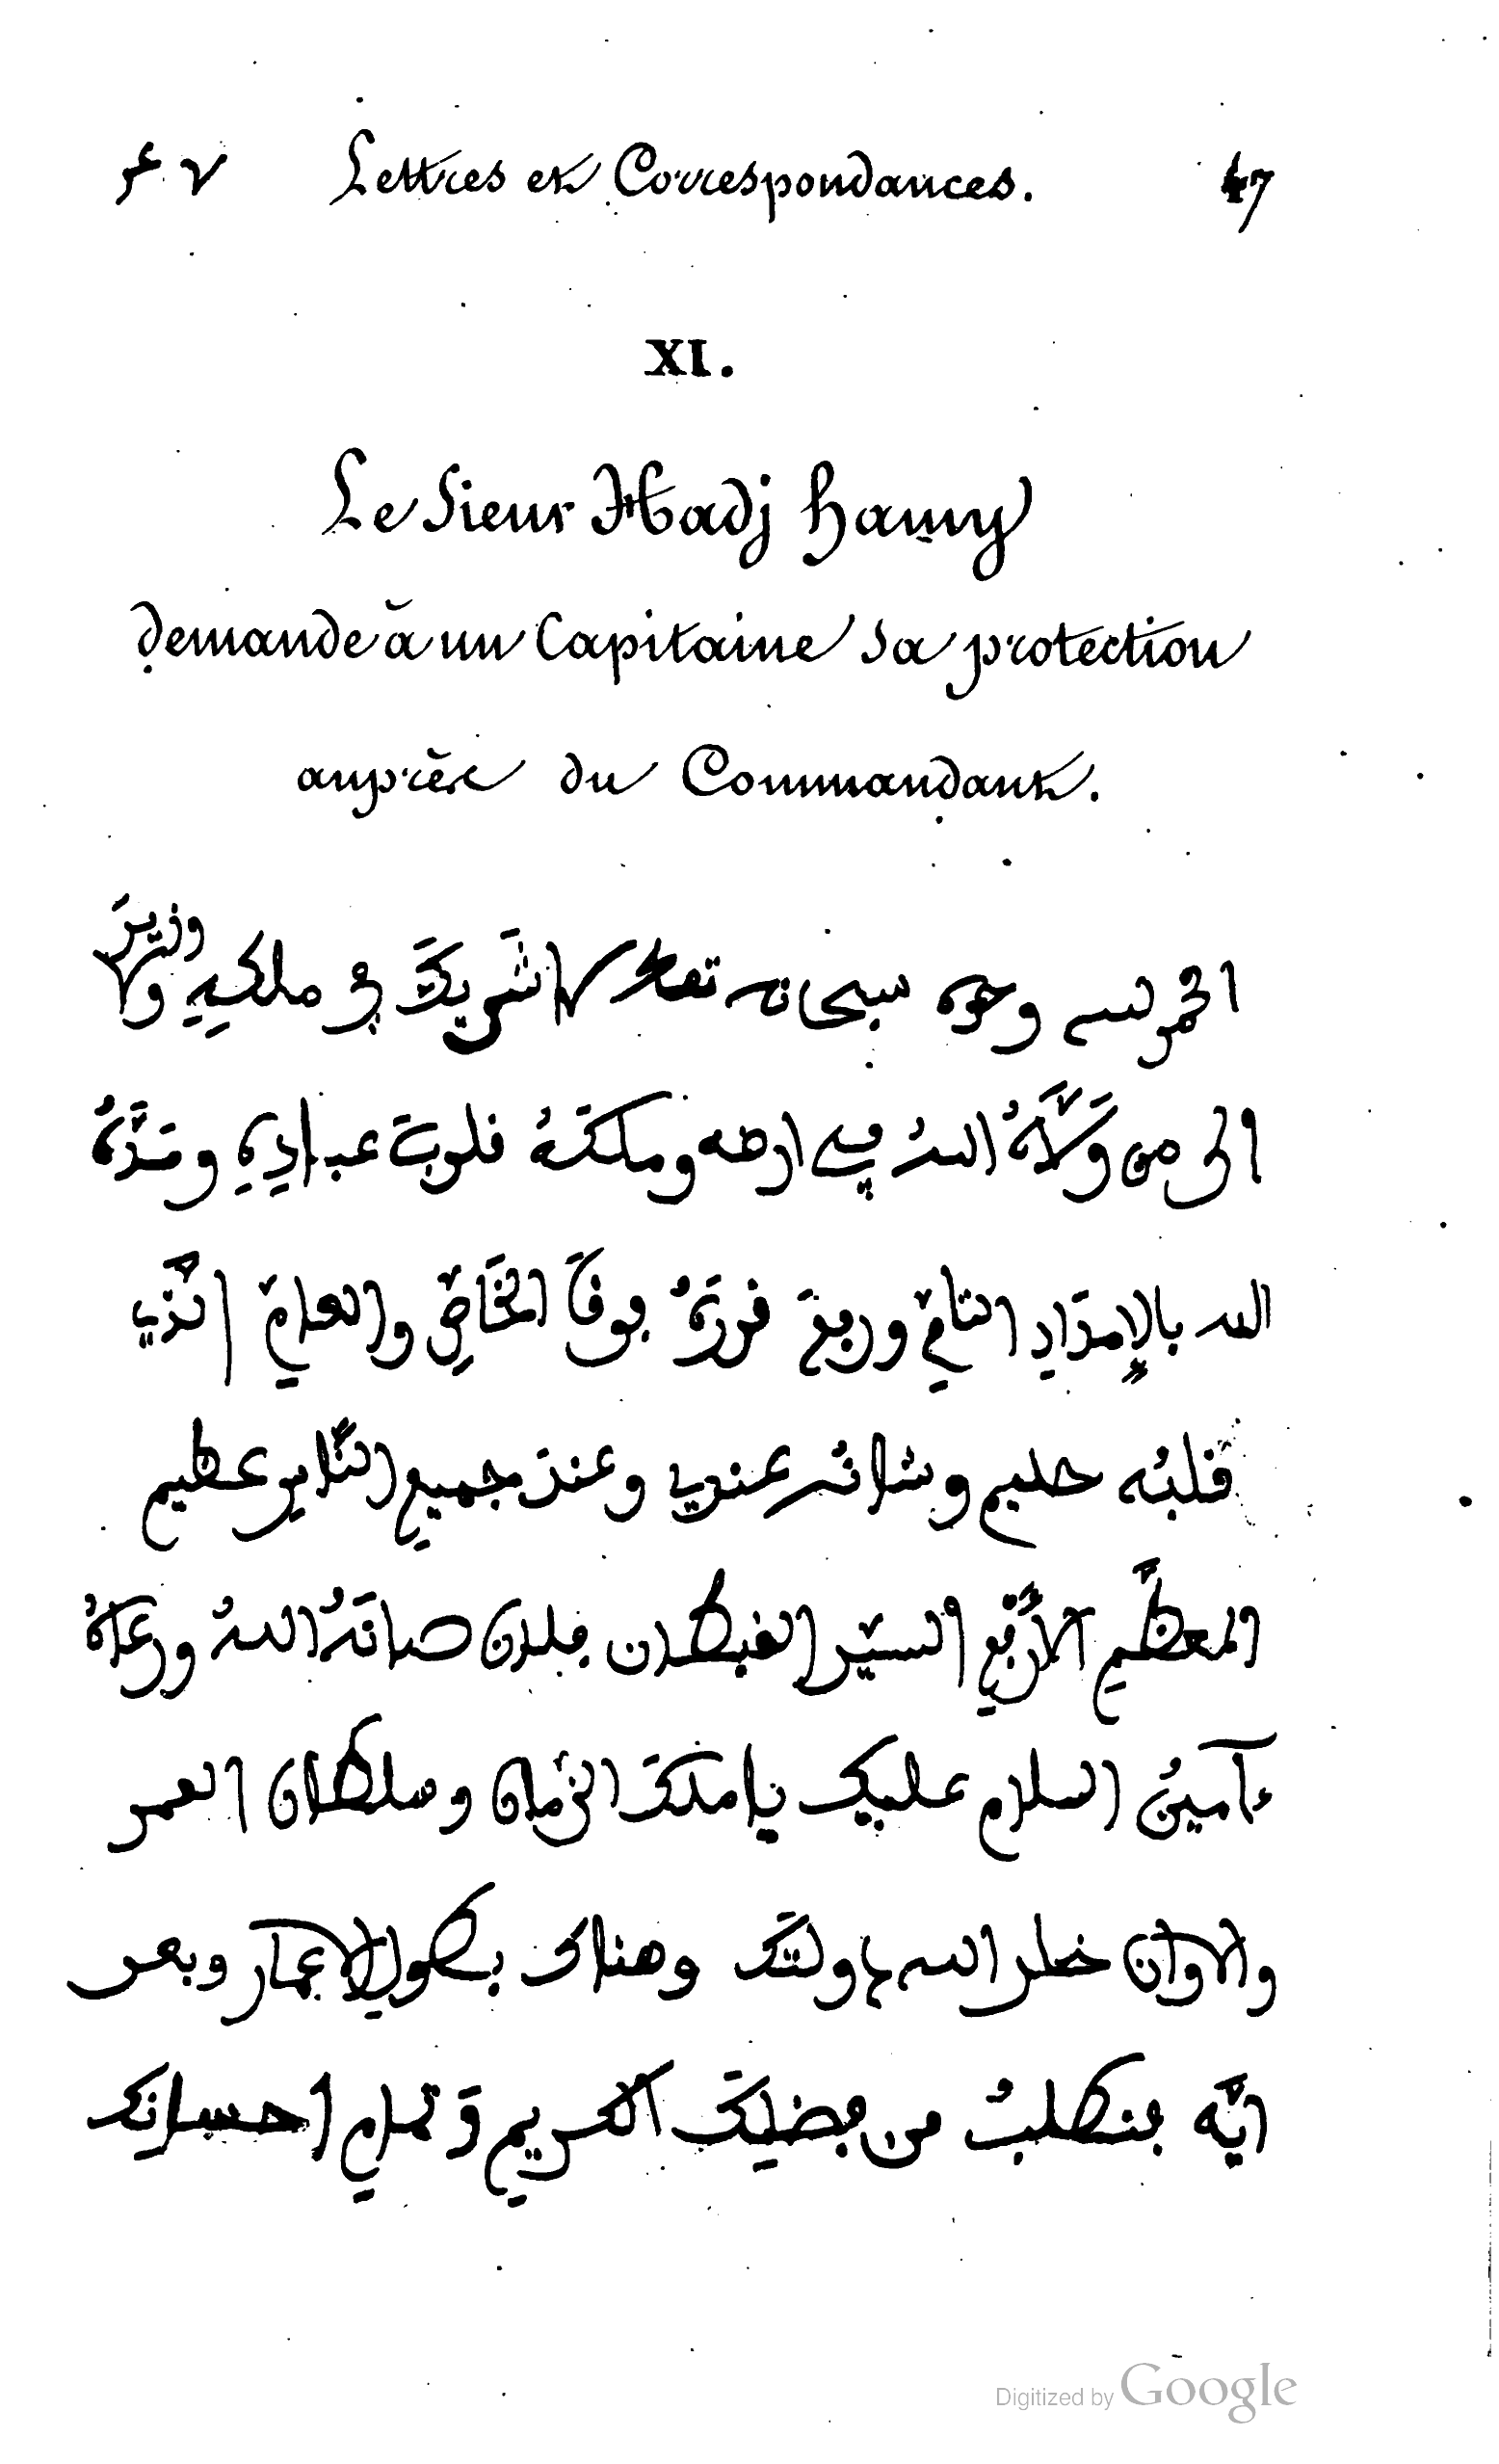 ٤٧ Lettres et Correspondances. 47
XI.
Le Sieur Hadj Hamy
demande à un Capitaine sa protection
auprès du Commandant.
الحمد لله وحده سبحانه تعلى لا شَرِيكَ في ملكِهِ ولا وزيرَ
الى من وَلَّاهُ اللهُ في ارضه وملكهُ فلوبَ عبادِهِ ومَدَّهُ
الله بالإمدَادِ التامِّ ورفعَ فدرَهُ بوقَ الخَاصِّ والعامِّ الَّذي
فلبُه حليم وشانُه عندي وعندَ جميعِ النَّاسِ عظيم
المعظَّمِ الأَرْفَعِ السيّد الفبطان فلان صانَهُ اللهُ ورعَاهُ
ءآمينْ السلام عليك يا ملكَ الزَّمان وسلطان العصر
والاوان خلد الله دولتَك وهناك بطولِ الاعمار وبعد
انَّه بنطلبُ من بضلِكَ الكريمِ وَتمامِ احسانِك
Digitized by Google